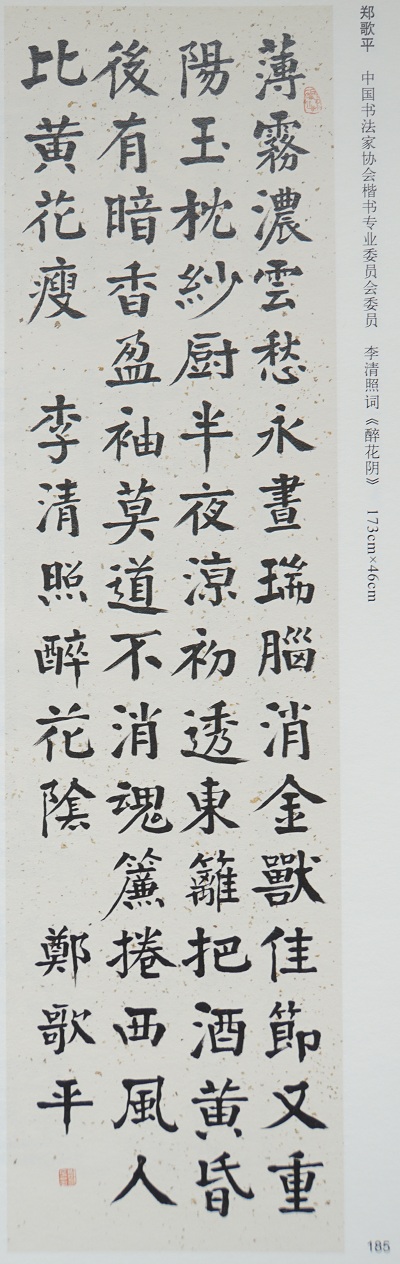 郑歌平 中国书法家协会楷书专业委员会委员 李清照词《醉花阴》 173cm×46cm
薄霧濃雲愁永晝瑞腦消金獸佳節又重
陽玉枕紗厨半夜涼初透東籬把酒黄昏
後有暗香盈袖莫道不消魂簾捲西風人
比黄花瘦 李清照醉花陰 鄭歌平
185